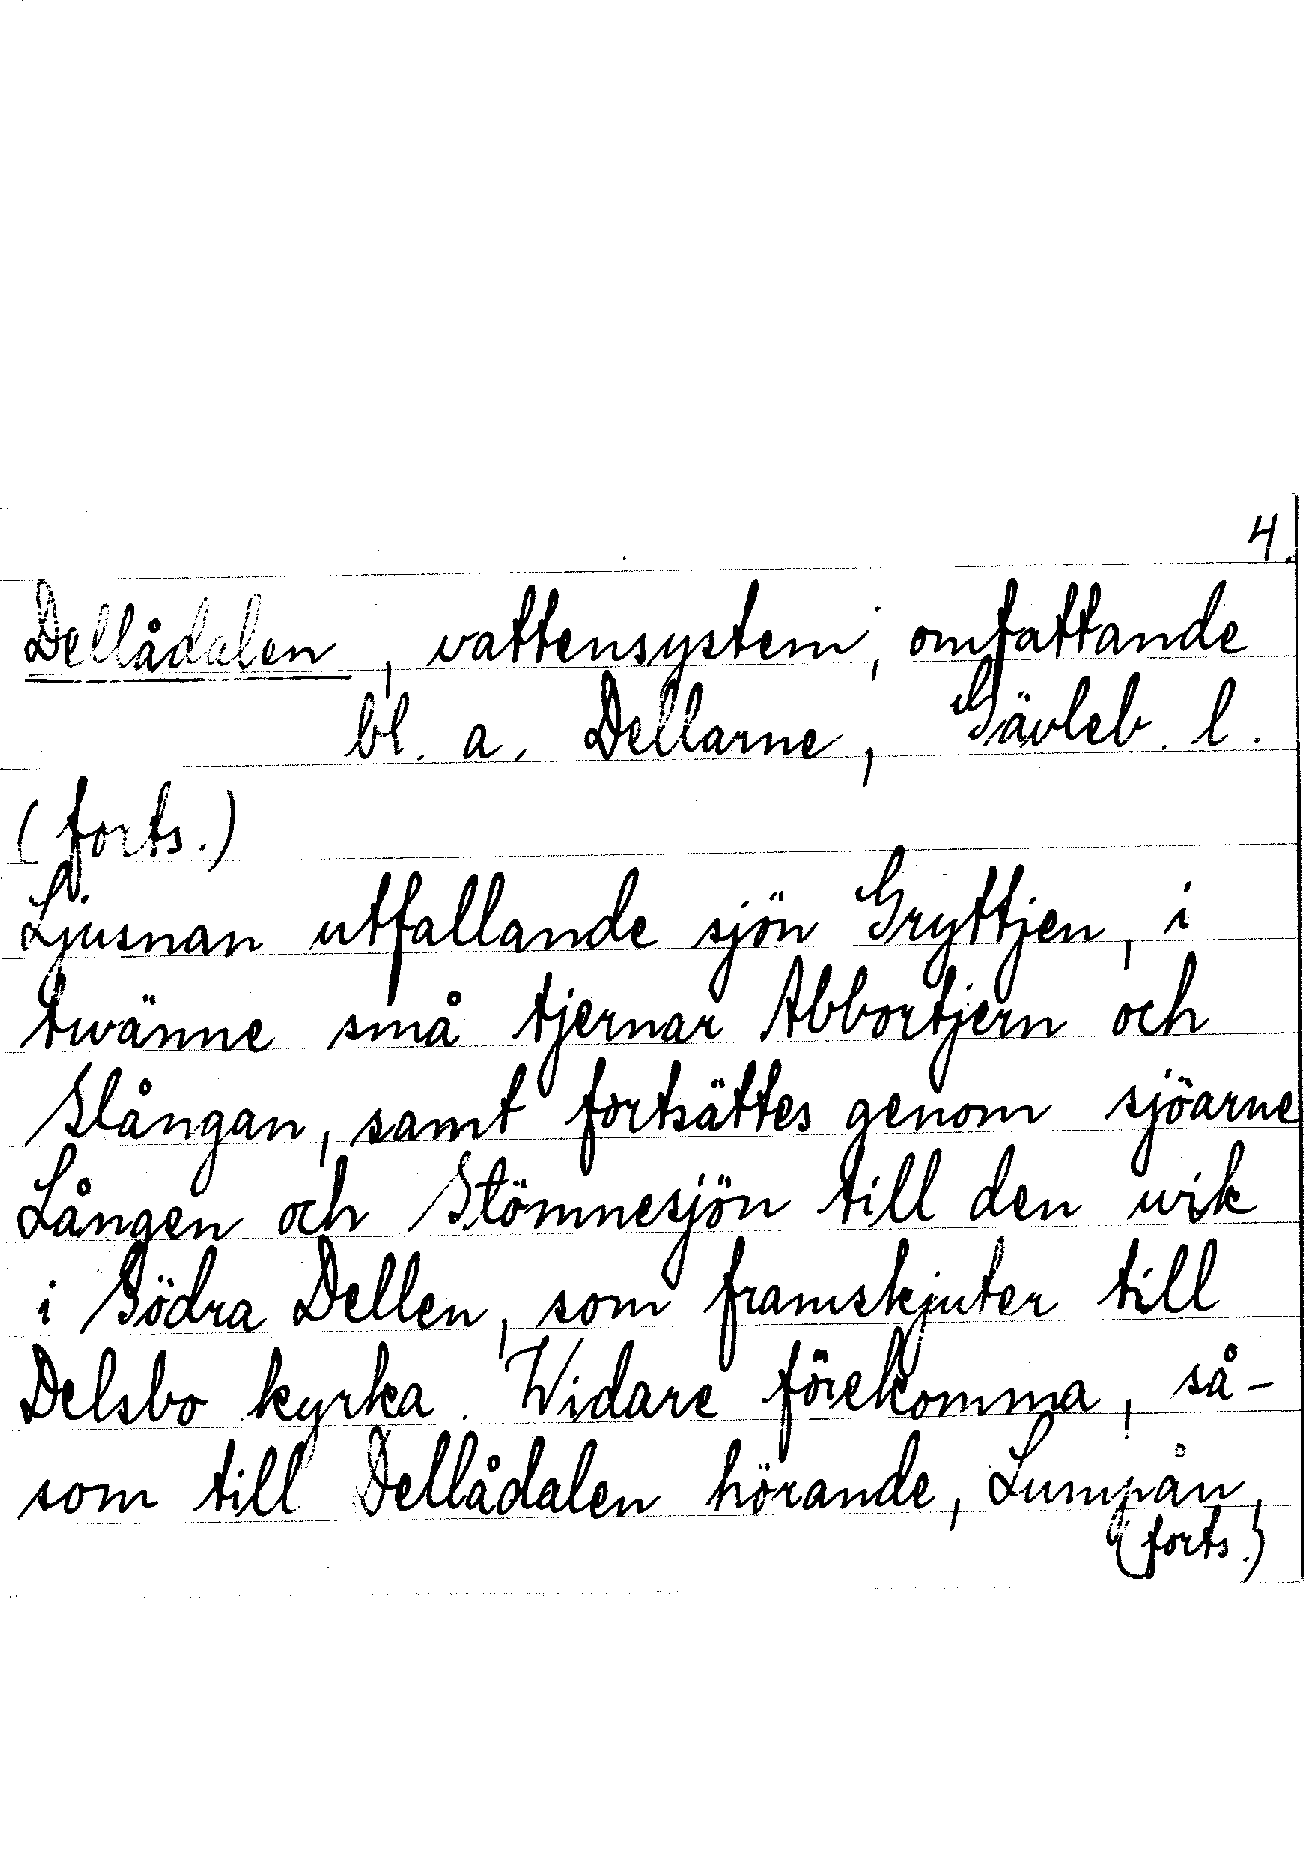 4.
Dellådalen, vattensystem, omfattande
bl. a. Dellarne, Gävleb. l.
(forts.)
Ljusnan utfallande sjön Gryttjen, i
twänne små tjernar Abbortjern och
Slångan, samt fortsättes genom sjöarne
Lången och Stömnesjön till den wik
i Södra Dellen, som framskjuter till
Delsbo kyrka. Widare förekomma, så-
som till Dellådalen hörande, Lumpån,
(forts.)